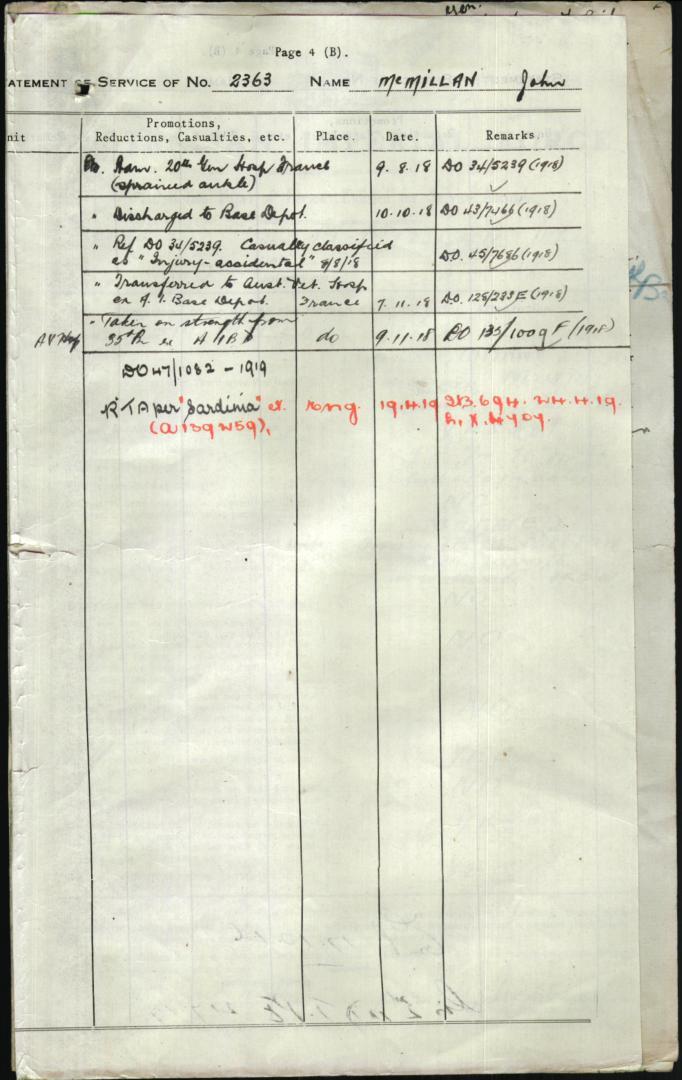 Page 4 (B).
ATEMENT OF SERVICE OF No. 2363 NAME McMILLAN John
nit Promotions, Reductions, Casualties, etc. Place. Date. Remarks.
Adm. 20th Gen Hosp France 9.8.18 DO 34/5239 (1918)
(sprained ankle)
" Discharged to Base Depot. 10.10.18 DO 43/7466 (1918)
" Ref DO 34/5239. Casualty classified
as "Injury-accidental" 8/8/18 DO. 45/7686 (1918)
" Transferred to Aust. Vet. Hosp
ex A.I. Base Depot. France 7.11.18 D.O. 128/233E (1918)
" Taken on strength from
A V Hosp 35th Bn ex A I B D do 9.11.18 DO 135/1009 F (1918)
DO 47/1082 - 1919
RTA per "Sardinia" ex. Eng. 19.4.19
(A139259).